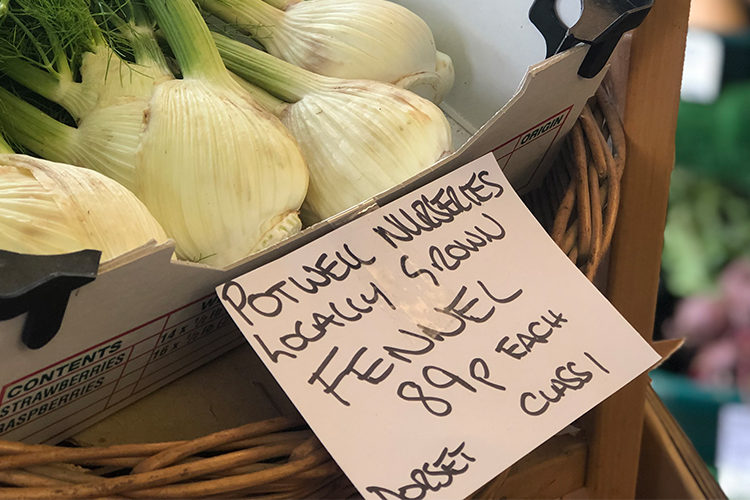 POTWELL NURSERIES
LOCALLY GROWN
FENNEL
89P EACH
CLASS 1
DORSET
ORIGIN
CONTENTS
STRAWBERRIES
RASPBERRIES